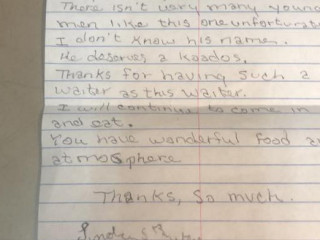 There isn't very many young
men like this one unfortunat
I don't know his name.
He deserves a koodos.
Thanks for having such a
waiter as this waiter.
I will continue to come in
and eat.
You have wonderful food a
atmosphere
Thanks, so much.